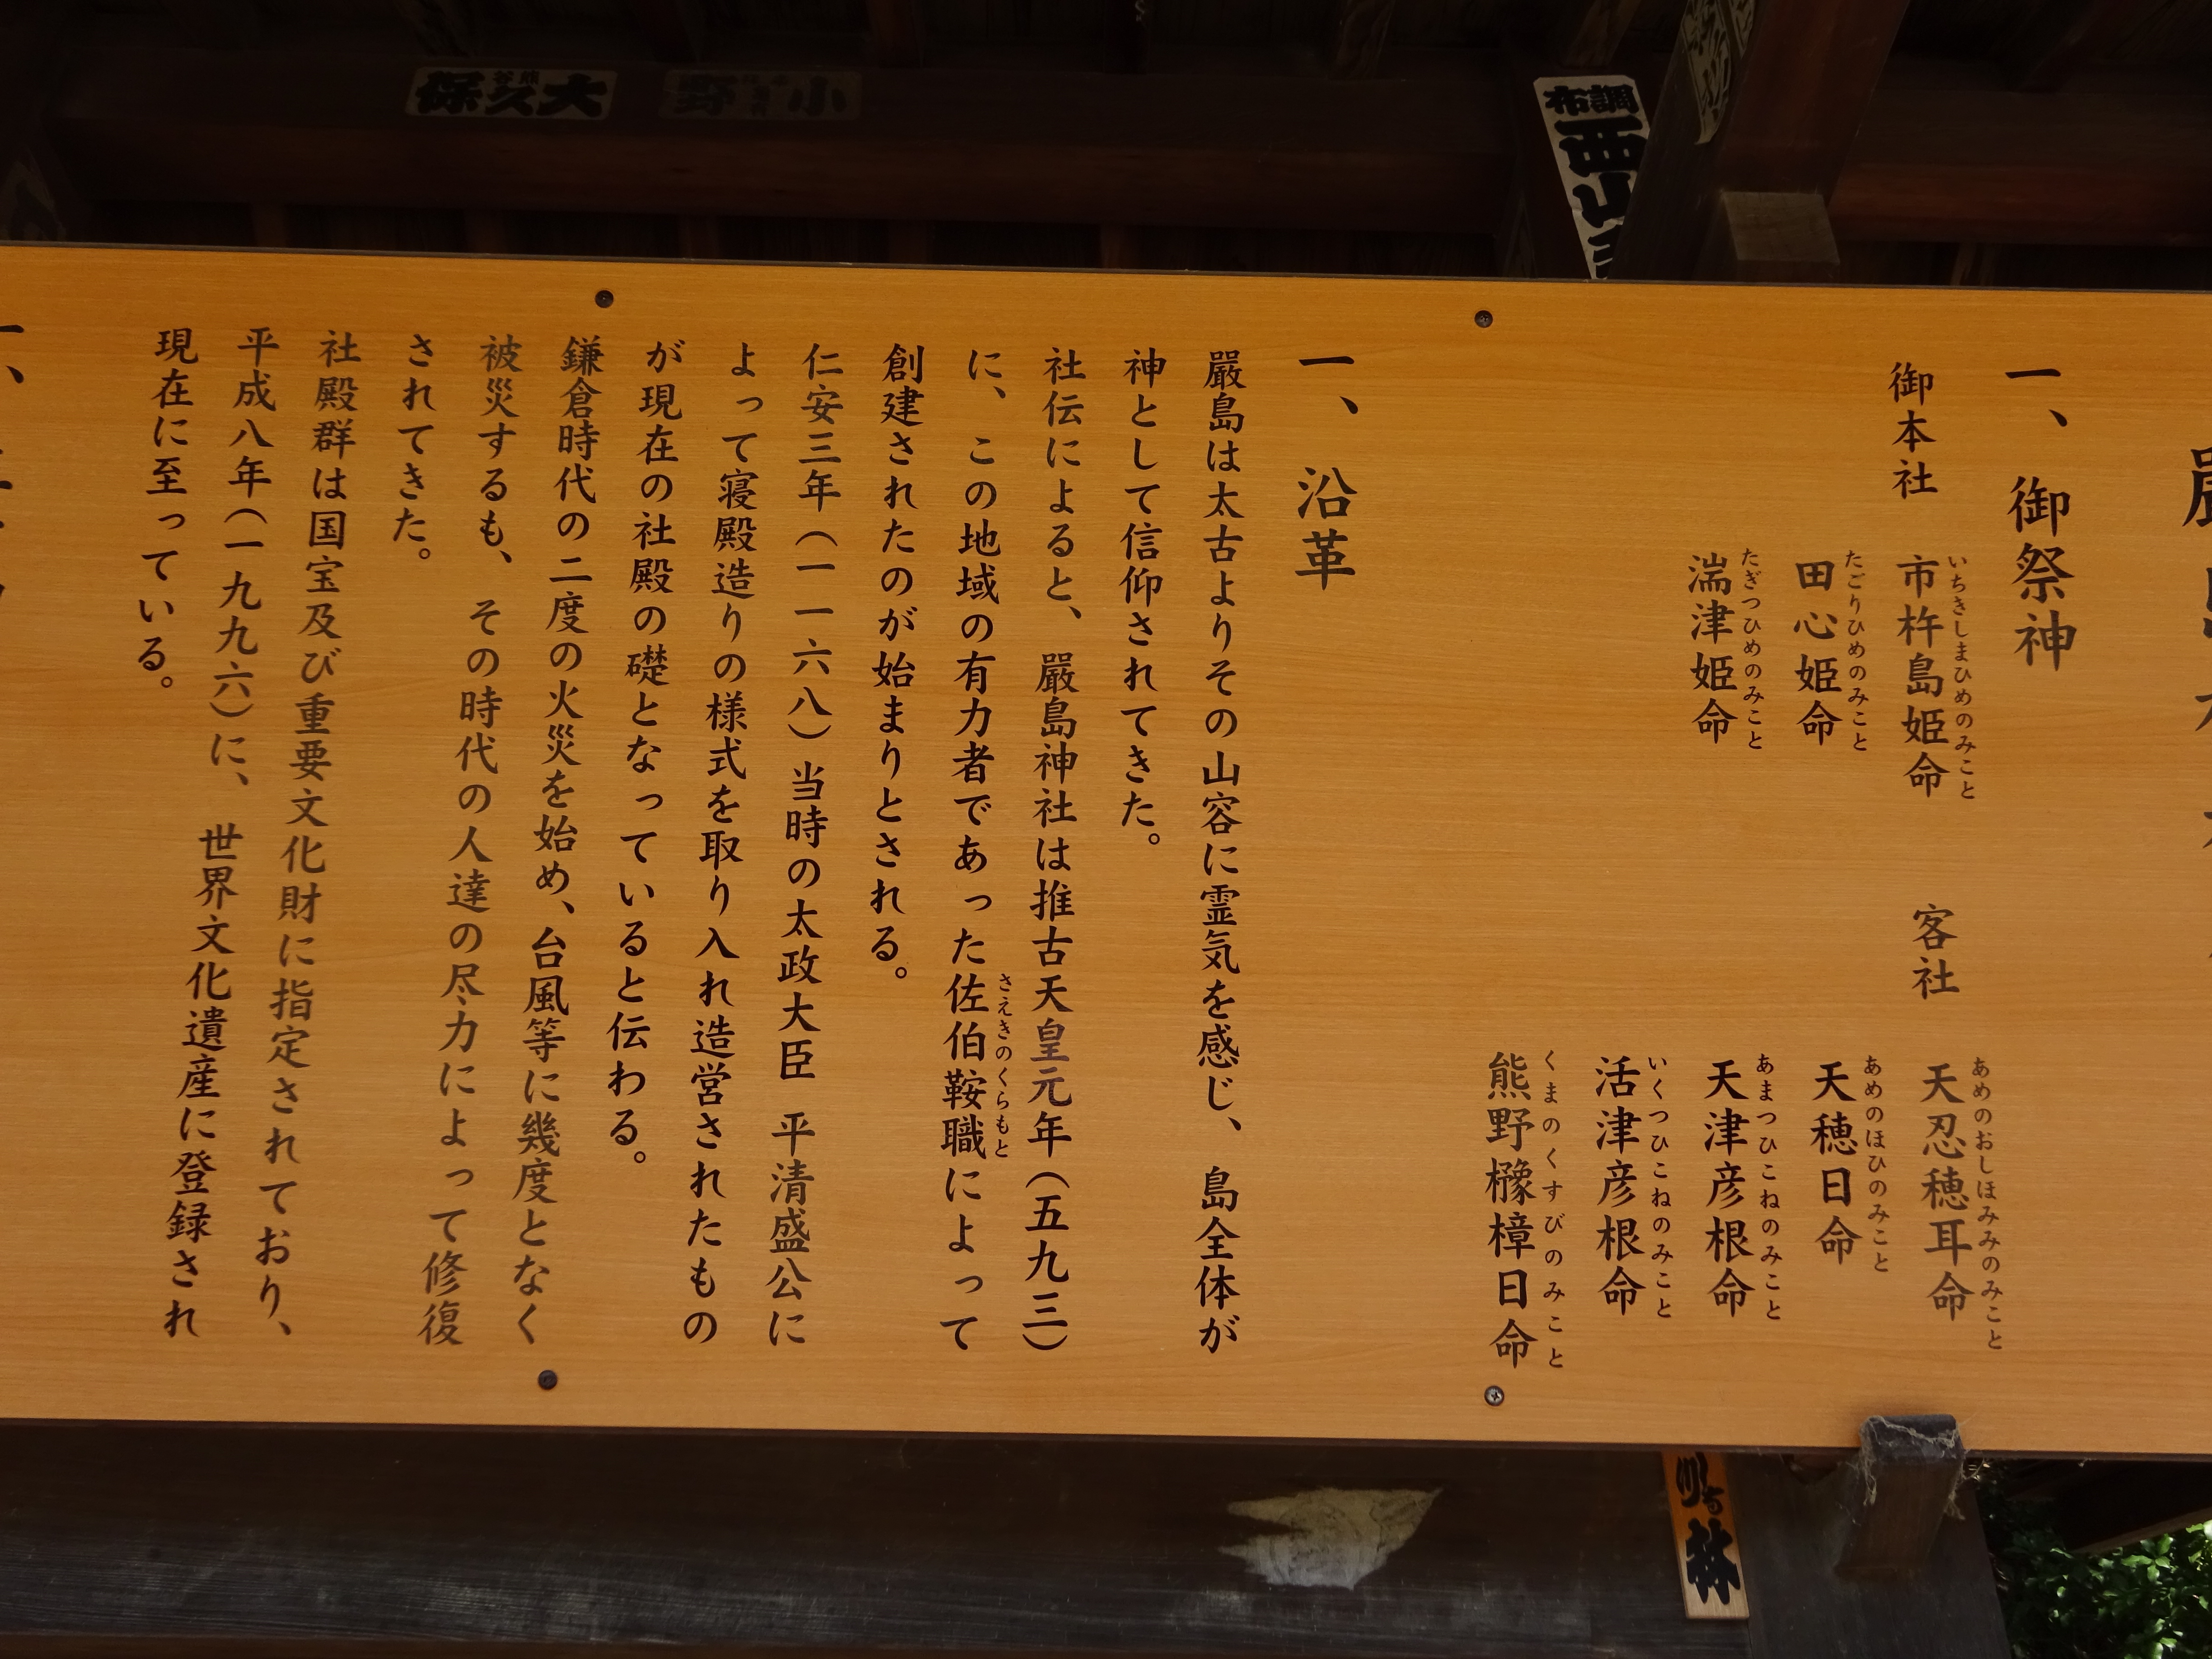 一、御祭神
御本社
市杵島姫命
いちきしまひめのみこと
田心姫命
たごりひめのみこと
湍津姫命
たぎつひめのみこと
客社
天忍穂耳命
あめのおしほみみのみこと
天穂日命
あめのほひのみこと
天津彦根命
あまつひこねのみこと
活津彦根命
いくつひこねのみこと
熊野櫲樟日命
くまのくすびのみこと
一、沿革
嚴島は太古よりその山容に霊気を感じ、島全体が
神として信仰されてきた。
社伝によると、嚴島神社は推古天皇元年（五九三）
に、この地域の有力者であった佐伯鞍職によって
さえきのくらもと
創建されたのが始まりとされる。
仁安三年（一一六八）当時の太政大臣 平清盛公に
よって寝殿造りの様式を取り入れ造営されたもの
が現在の社殿の礎となっていると伝わる。
鎌倉時代の二度の火災を始め、台風等に幾度となく
被災するも、その時代の人達の尽力によって修復
されてきた。
社殿群は国宝及び重要文化財に指定されており、
平成八年（一九九六）に、世界文化遺産に登録され
現在に至っている。
大久保
熊谷
小野
調布
西山
林